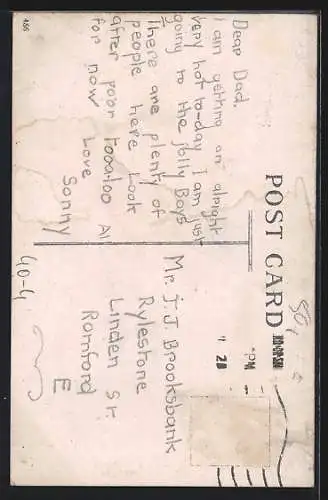 486
POST CARD
Dear Dad.
I am getting on alright
very hot to-day I am just
going to the jolly Boys
There are plenty of
people here Look
after poor tooaloo Al
for now Love
Sonny
Mr. J. J. Brooksbank
Rylestone
Linden St.
Romford
E
40-4
PM
28